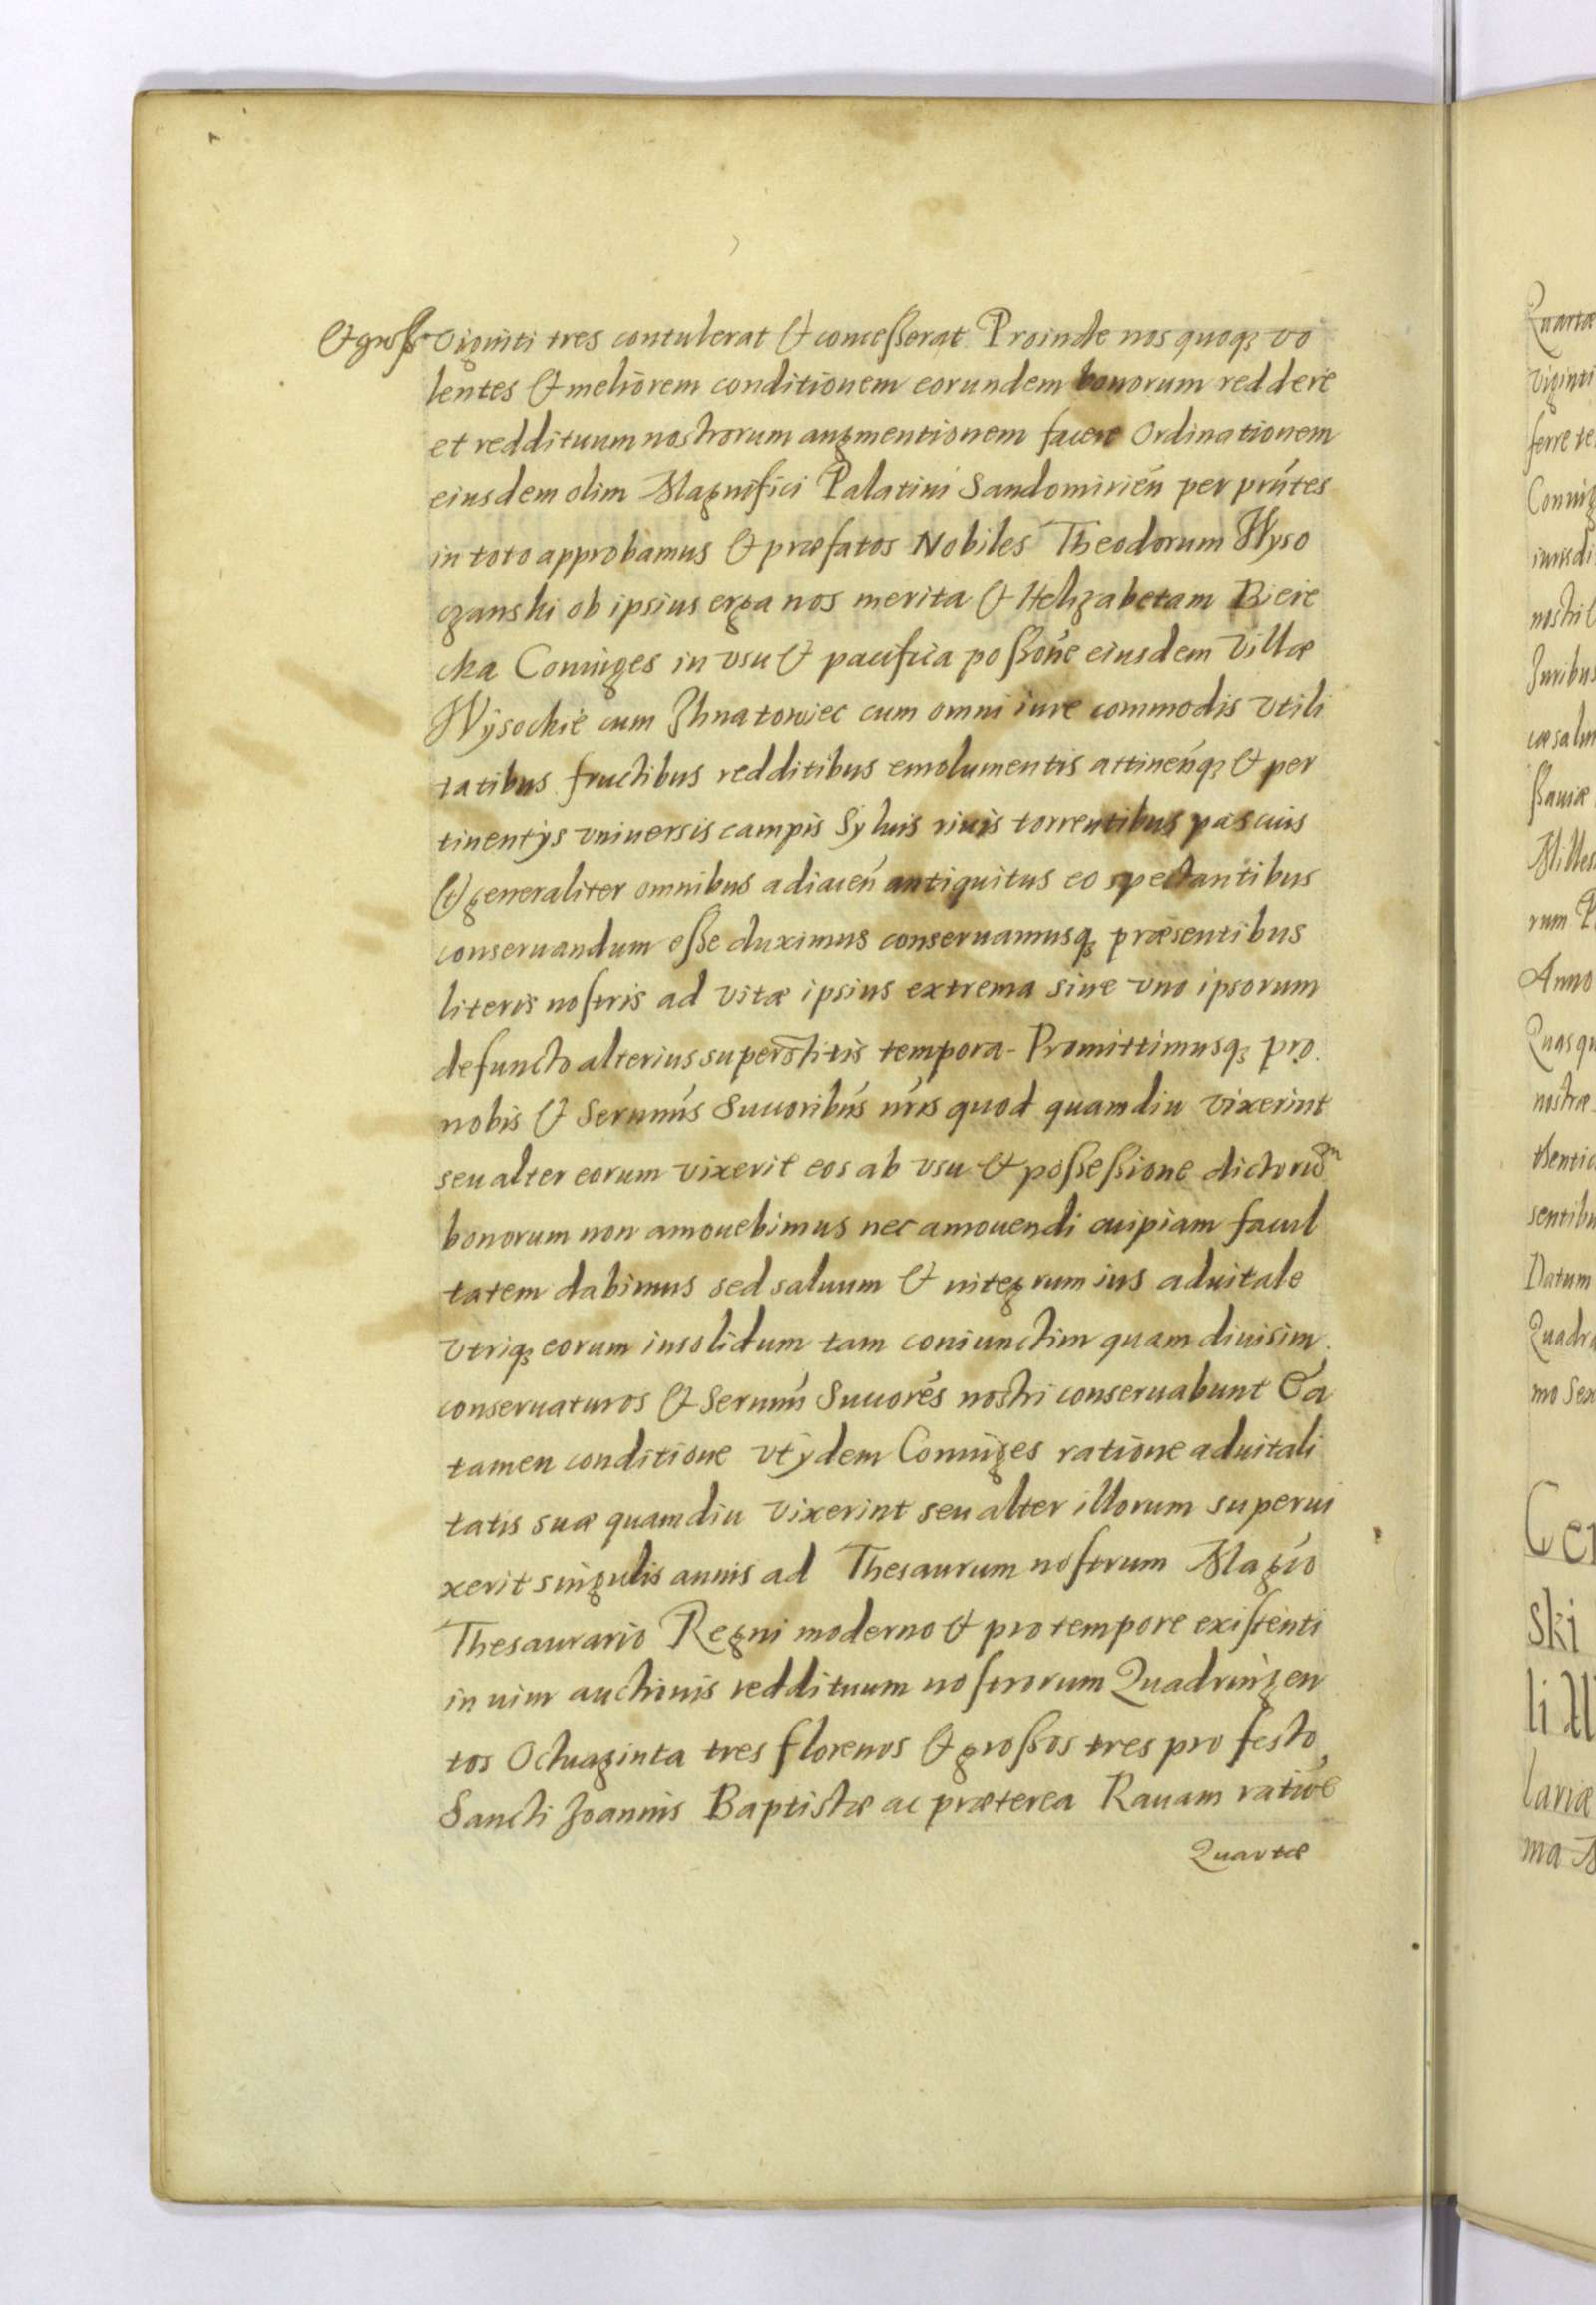 & gross viginti tres contulerat & concesserat Proinde nos quoq₃ vo
lentes & meliorem conditionem eorundem bonorum reddere
et reddituum nostrorum augmentionem facere Ordinationem
eiusdem olim Magnifici Palatini Sandomirień per prńtes
in toto approbamus & præfatos Nobiles Theodorum Wyso
czanski ob ipsius erga nos merita & Helizabetam Bieie
cka Coniuges in vsu & pacifica possońe eiusdem Villæ
Wysockie cum Ihnatowiec cum omni iure commodis vtili
tatibus fructibus redditibus emolumentis attineńq₃ & per
tinentÿs vniuersis campis Syluis riuis torrentibus pascuis
& generaliter omnibus adiaceń antiquitus eo spectantibus
conseruandum esse duximus conseruamusq₃ præsentibus
literis nostris ad vitæ ipsius extrema siue vno ipsorum
defuncto alterius superstitis tempora - Promittimusq₃ pro
nobis & Sernmís Succoribús nŕis quod quamdiu vixerint
seu alter eorum vixerit eos ab vsu & possessione dictorum
bonorum non amouebimus nec amouendi cuipiam facul
tatem dabimus sed saluum & integrum ius aduitale
vtriq₃ eorum insolidum tam coniunctim quam diuisim
conseruaturos & Sernmí Succorés nostri conseruabunt Ea
tamen conditione vt ÿdem Coniuges ratione aduitali
tatis suæ quamdiu vixerint seu alter illorum superui
xerit singulis annis ad Thesaurum nostrum Magćo
Thesaurario Regni moderno & pro tempore existenti
in uim auctionis reddituum nostrorum Quadringen
tos Octuaginta tres florenos & grossos tres pro festo
Sancti Joannis Baptistæ ac præterea Rauam ratióe
Quartæ
Quartæ
viginti
Anno
Datum
ski